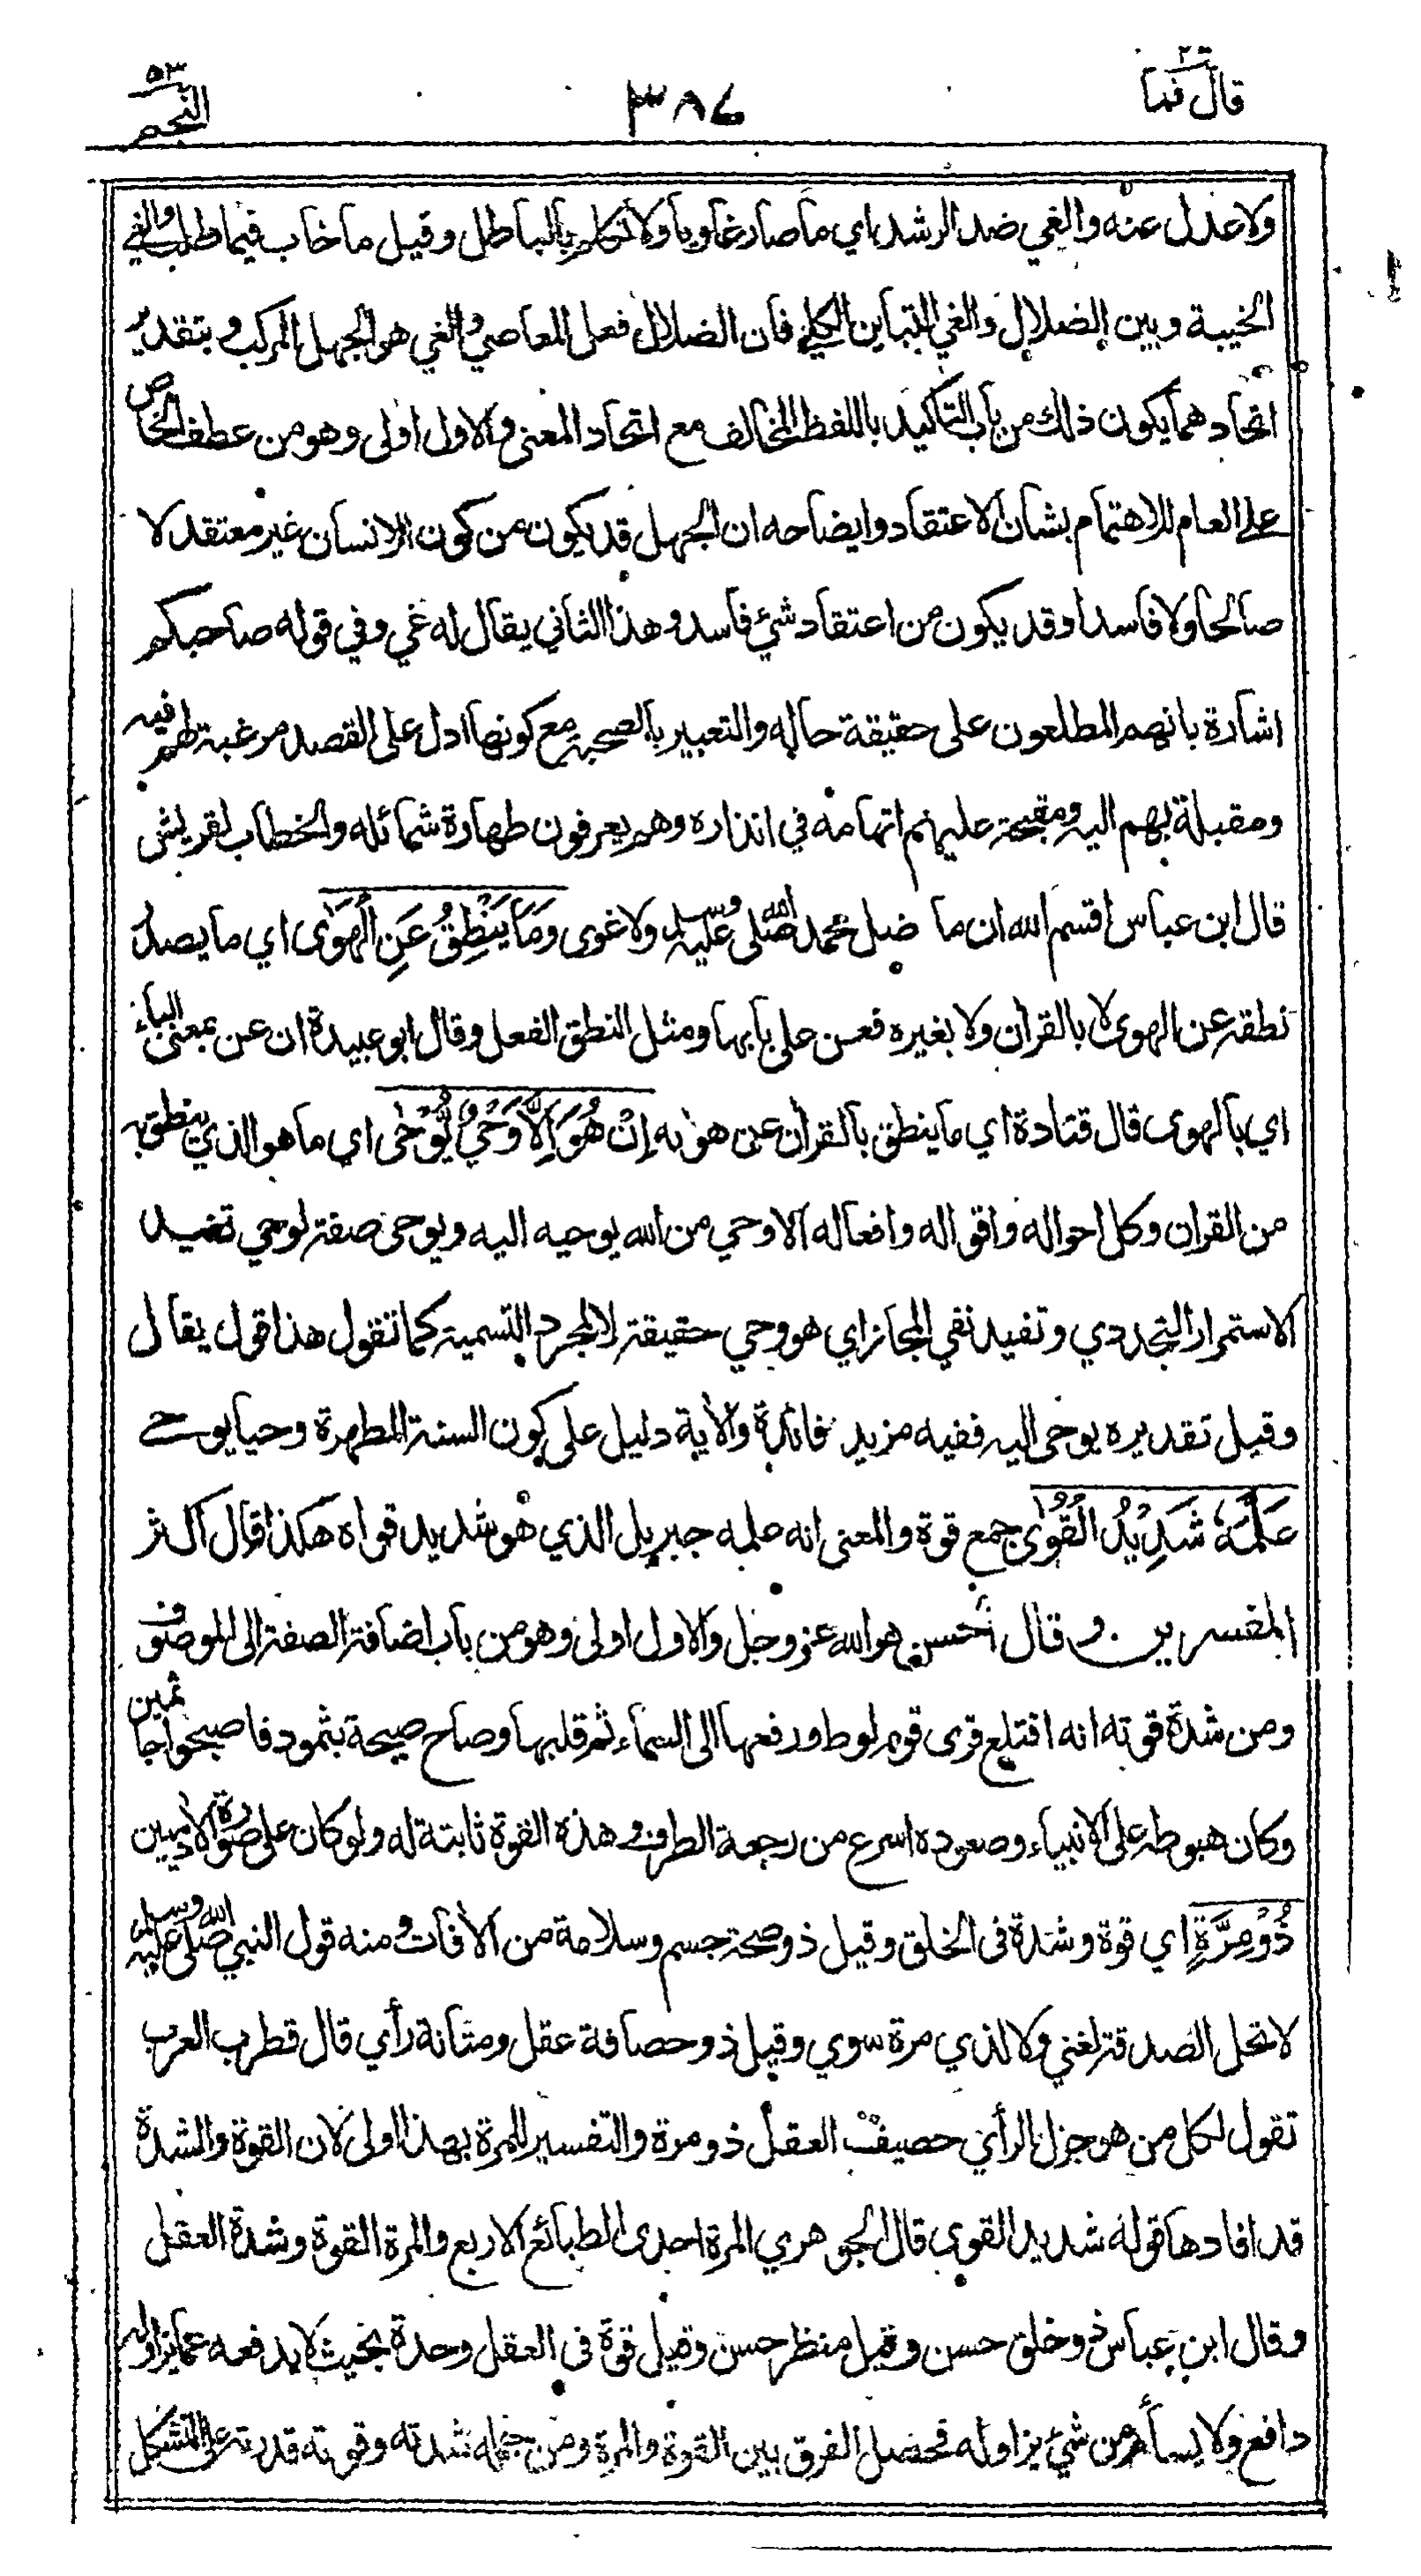 قال فما ٢٧
٣٨٦
النجم ٥٣
ولا عدل عنه والغي ضد الرشد اي ما صار غاويا ولا تكلم بالباطل وقيل ما خاب فيما طلب والغي
الخيبة وبين الضلال والغي التباين الكلي فان الضلال فعل المعاصي والغي هو الجهل المركب وبتقدير
اتحادهما يكون ذلك من باب التاكيد باللفظ المخالف مع اتحاد المعنى والاول اولى وهو من عطف الخاص
على العام للاهتمام بشان الاعتقاد وايضاحه ان الجهل قد يكون من كون الانسان غير معتقد لا
صالحا ولا فاسدا وقد يكون من اعتقاد شئ فاسد وهذا الثاني يقال له غي وفي قوله صاحبكم
اشارة بانهم المطلعون على حقيقة حاله والتعبير بالصحبة مع كونها ادل على القصد مرغبة لهم فيه
ومقبلة بهم اليه ومقبحة عليهم اتهامه في انذاره وهم يعرفون طهارة شمائله والخطاب لقريش
قال ابن عباس اقسم الله ان ما ضل محمد صلى الله عليه وسلم ولا غوى وَمَا يَنْطِقُ عَنِ الْهَوٰى اي ما يصدر
نطقه عن الهوى لا بالقران ولا بغيره فعن على بابها ومثل النطق الفعل وقال ابو عبيدة ان عن بمعنى الباء
اي بالهوى قال قتادة اي ما ينطق بالقران عن هواه به اِنْ هُوَ اِلَّا وَحْيٌ يُّوْحٰى اي ما هو الذي ينطق به
من القران وكل احواله واقواله وافعاله الا وحي من الله يوحيه اليه ويوحى صفة لوحي تفيد
الاستمرار التجددي وتفيد نفي المجاز اي هو وحي حقيقة لا لمجرد التسمية كما تقول هذا قول يقال
وقيل تقديره يوحى اليه ففيه مزيد فائدة والأية دليل على كون السنة المطهرة وحيا يوحى
عَلَّمَهٗ شَدِيْدُ الْقُوٰى جمع قوة والمعنى انه علمه جبريل الذي هو شديد قواه هكذا قال اكثر
المفسرين وقال الحسن هو الله عز وجل والاول اولى وهو من باب اضافة الصفة الى الموصوف
ومن شدة قوته انه اقتلع قرى قوم لوط ورفعها الى السماء ثم قلبها وصاح صيحة بثمود فاصبحوا جاثمين
وكان هبوطه على الانبياء وصعوده اسرع من رجعة الطرف وهذه القوة ثابتة له ولو كان على صورة الادميين
ذُوْ مِرَّةٍ اي قوة وشدة في الخلق وقيل ذو صحة جسم وسلامة من الأفات ومنه قول النبي صلى الله عليه وسلم
لا تحل الصدقة لغني ولا لذي مرة سوي وقيل ذو حصافة عقل ومتانة رأي قال قطرب العرب
تقول لكل من هو جزل الرأي حصيف العقل ذو مرة والتفسير للمرة بهذا اولى لان القوة والشدة
قد افادها قوله شديد القوى قال الجوهري المرة احدى الطبائع الاربع والمرة القوة وشدة العقل
وقال ابن عباس ذو خلق حسن وقيل منظر حسن وقيل قوة في العقل وحدة بحيث لا يدفعه عما يزاوله
دافع ولا يسأم من شئ يزاوله فحصل الفرق بين القوة والمرة ومن جملة شدته وقوته قدرته على التشكل